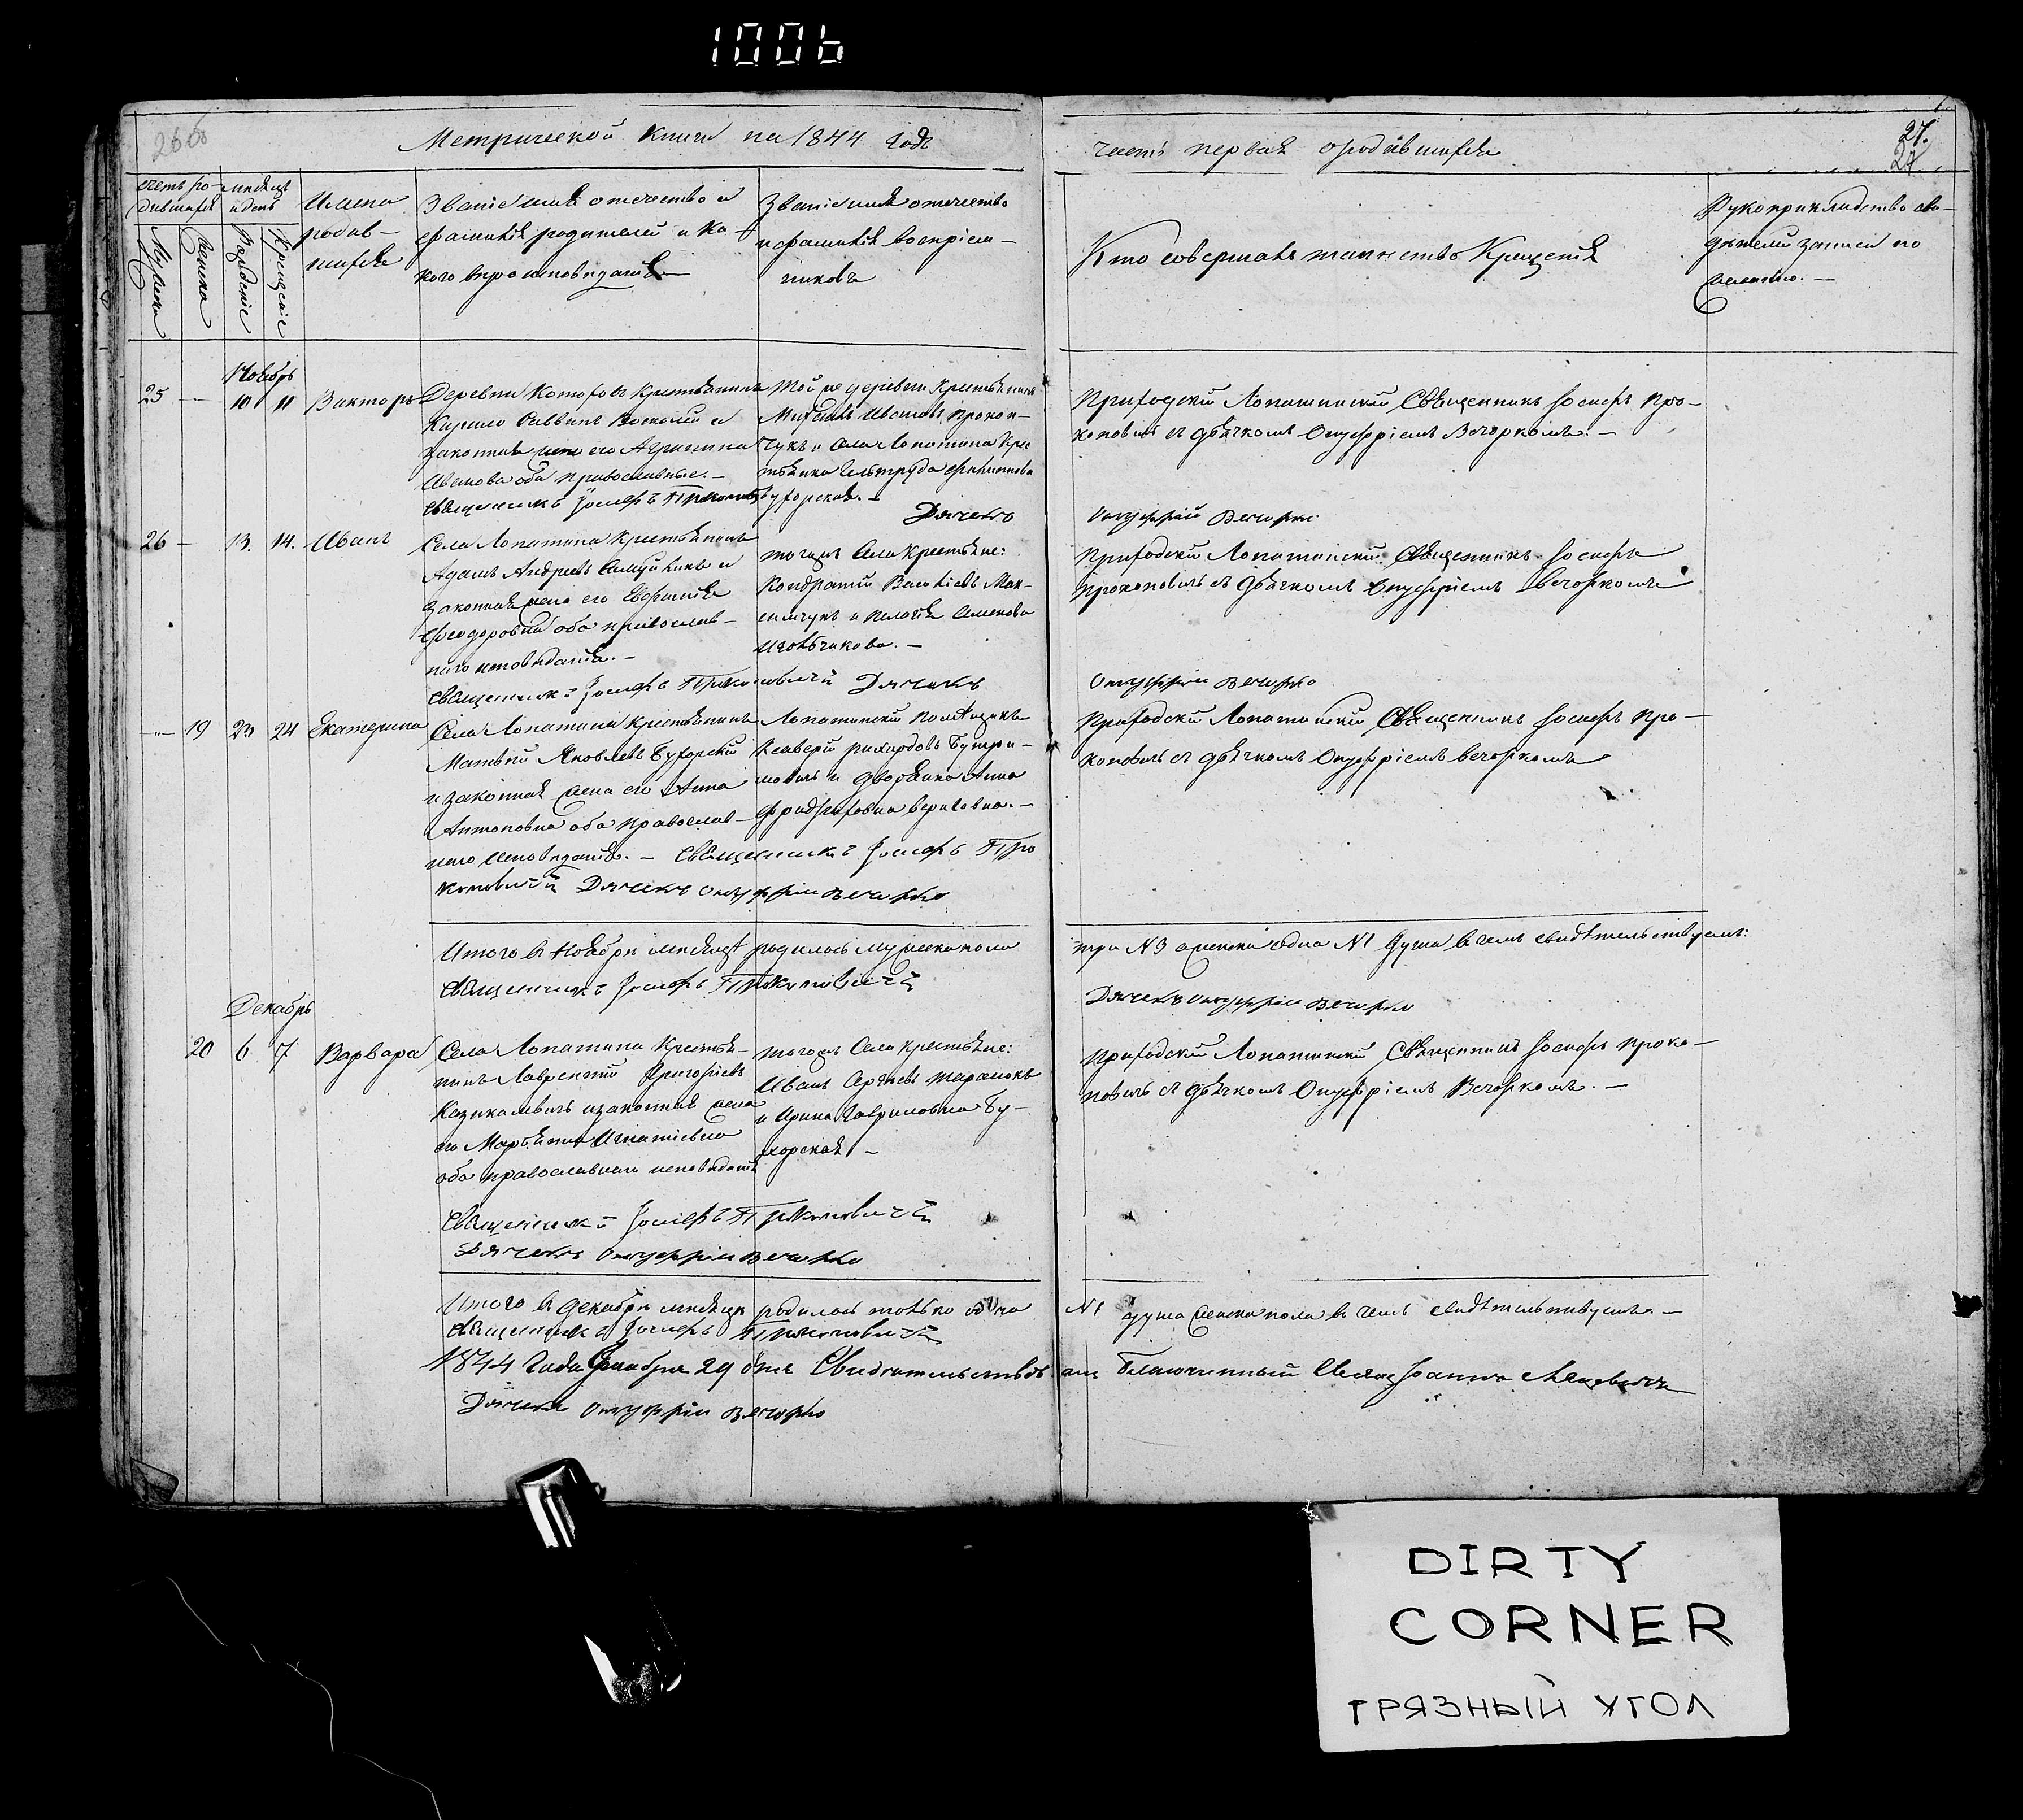 1006
Метрической книги на 1844 годъ
часть первая о родившихся
27.
27
счетъ ро-
дившихся
мѣсяцъ
и день
Мужска
Женска
Рожденіе
Крещеніе
Имена
родив-
шихся
Званіе имя отечество и
фамилія родителей и ка-
кого вѣроисповѣданія
Званіе имя отечество
и фамилія воспріем-
никовъ
Кто совершалъ таинство Крещенія
Рукоприкладство сви-
дѣтелей записи по
желанію. —
Ноябрь
25 — 10 11 Викторъ
Деревни Котовъ крестьянинъ
Кирило Саввинъ и
законная жена его Агрипина
Иванова оба православные. —
Священникъ Іосифъ Прокоповичъ
Той же деревни крестьянинъ
Михаилъ Ивановъ Прокоп-
чукъ и села Лопатина кре-
стьянка Гельтруда Филиппова
Бухорская. —
Дячекъ
Приходскій Лопатинскій Священникъ Іосифъ Про-
коповичъ съ дьячкомъ Онуфріемъ Вечоркомъ. —
Онуфрій Вечорко
26 — 13. 14. Иванъ
Села Лопатина крестьянинъ
Адамъ Андреевъ и
законная жена его Евфимія
Феодоровна оба православ-
наго исповѣданія. —
Священникъ Іосифъ Прокоповичъ Дячекъ
тогожъ села крестьяне:
Кондратій Васильевъ Мак-
симчукъ и Пелагія Семенова
—
Приходскій Лопатинскій Священникъ Іосифъ
Прокоповичъ съ дьячкомъ Онуфріемъ Вечоркомъ
Онуфрій Вечорко
— 19 23 24 Екатерина
Села Лопатина крестьянинъ
Матвѣй Яковлевъ Бухорскій
и законная жена его Анна
Антоновна оба православ-
наго исповѣданія. — Священникъ Іосифъ Про
коповичъ Дячекъ Онуфрій Вечорко
Лопатинскій помѣщикъ
Ксаверій Рихардовъ Бутри-
мовичъ и дворянка Анна
—
Приходскій Лопатинскій Священникъ Іосифъ Про-
коповичъ съ дьячкомъ Онуфріемъ Вечоркомъ
Итого въ Ноябрѣ мѣсяцѣ родилось мужеска пола
три №3 а женска одна №1 душа въ чемъ свидѣтельствуемъ:
Священникъ Іосифъ Прокоповичъ
Дячекъ Онуфрій Вечорко
Декабрь
20 6 7 Варвара
Села Лопатина крестья-
нинъ Лаврентій Григорьевъ
и законная жена
его Марьяна Игнатіевна
оба православнаго исповѣданія
Священникъ Іосифъ Прокоповичъ
Дячекъ Онуфрій Вечорко
тогожъ села крестьяне:
Иванъ Сергѣевъ
и Ирина Гавриловна Бу-
хорская —
Приходскій Лопатинскій Священникъ Іосифъ Проко-
повичъ съ дьячкомъ Онуфріемъ Вечоркомъ. —
Итого въ Декабрѣ мѣсяцѣ родилось только одна
№1 душа женска пола въ чемъ свидѣтельствуемъ —
Священникъ Іосифъ Прокоповичъ
1844 года Декабря 29 дня Свидѣтельствовалъ Благочинный Священникъ Іоаннъ
Дячекъ Онуфрій Вечорко
DIRTY
CORNER
ГРЯЗНЫЙ УГОЛ